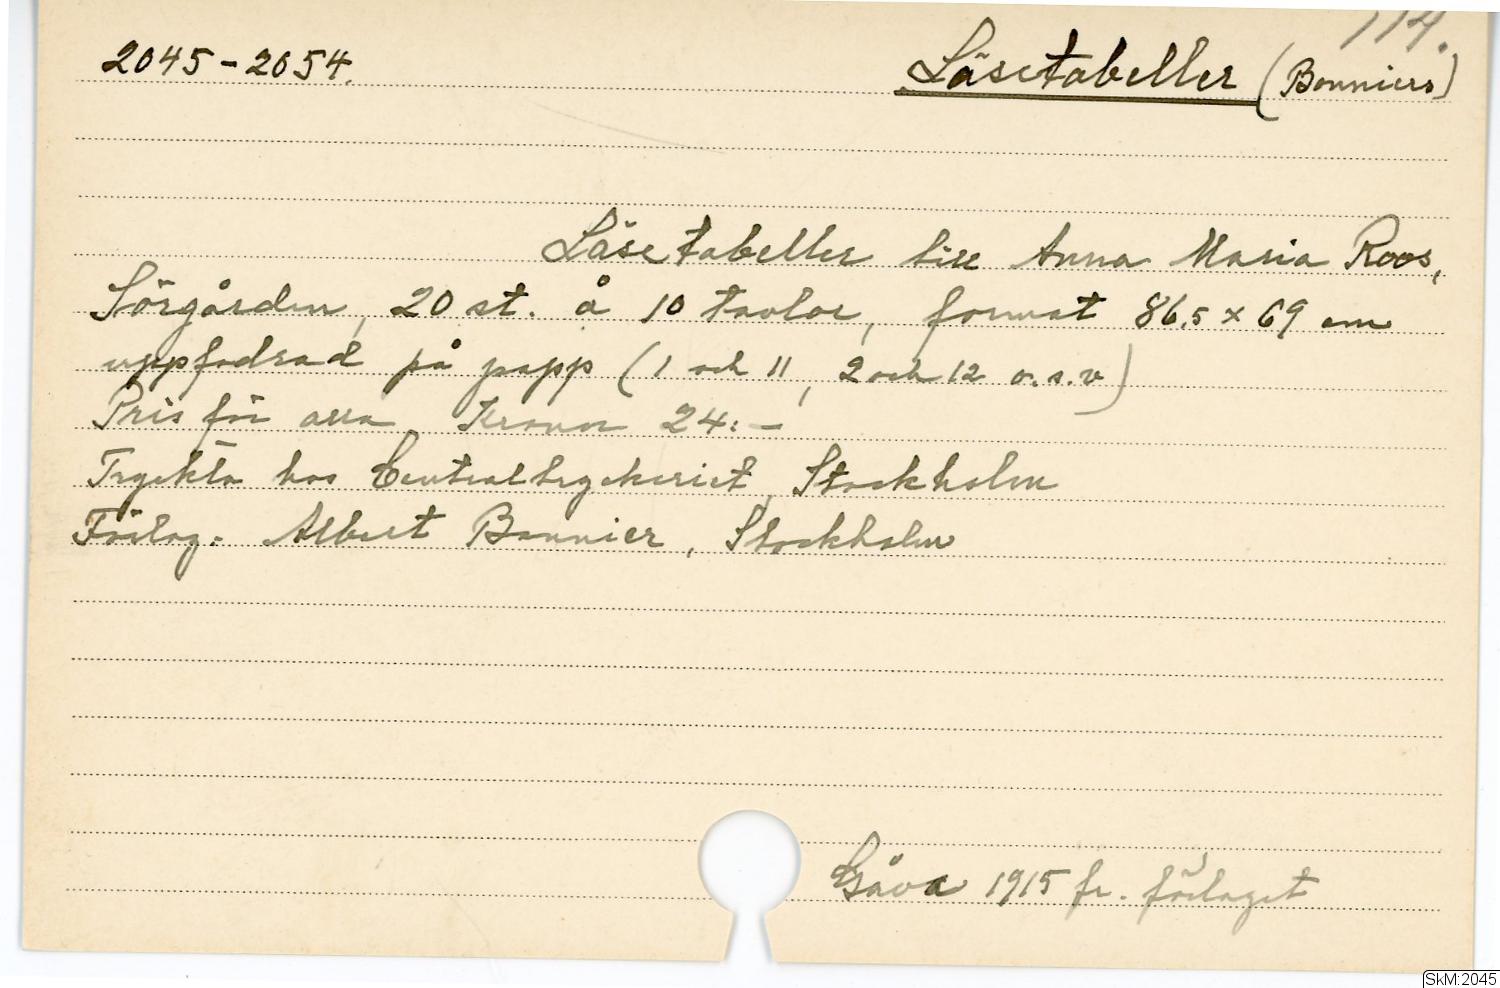 114.
2045-2054.
Läsetabeller (Bonniers)
Läsetabeller till Anna Maria Roos,
Sörgården, 20 st. å 10 tavlor, format 86,5 x 69 cm
uppfodrad på papp (1 och 11, 2 och 12 o.s.v)
Pris för alla Kronor 24:-
Tryckta hos Centraltryckeriet, Stockholm
Förlag: Albert Bonnier, Stockholm
Gåva 1915 fr. förlaget
SkM:2045